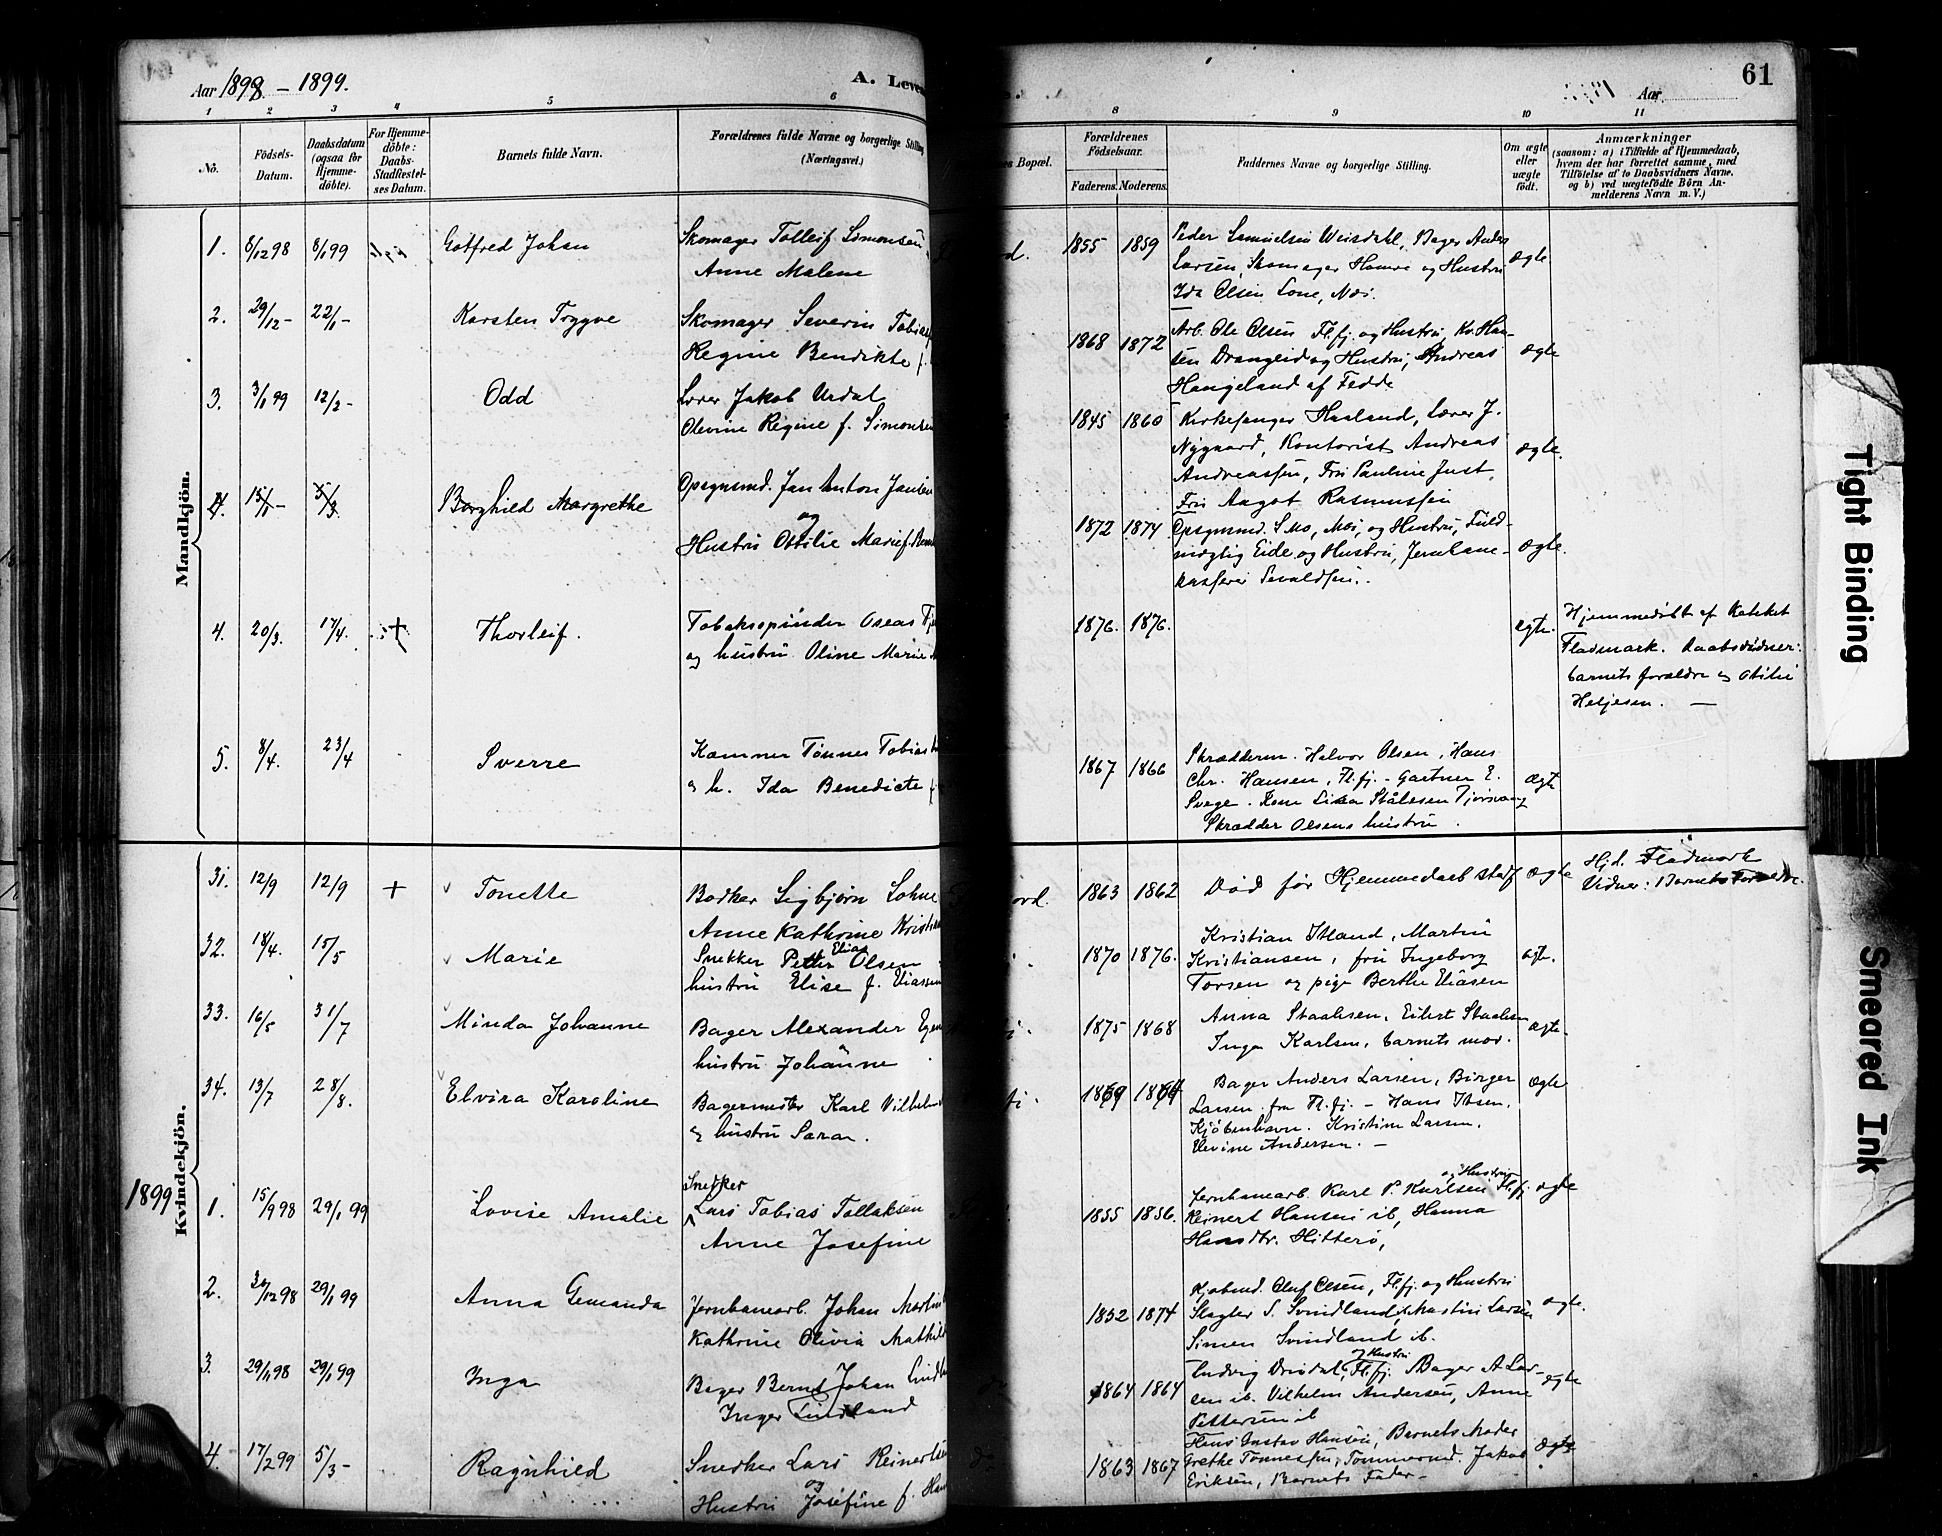 Aar 1898 - 1899.
A. Leve
61
Aar
1 2 3 4 5 6 8 9 10 11
No.
Födsels-Datum.
Daabsdatum (ogsaa for Hjemme-döbte).
For Hjemme-döbte: Daabs-Stadfestel-ses Datum.
Barnets fulde Navn.
Forældrenes fulde Navne og borgerlige Stilling (Næringsvei.)
es Bopæl.
Forældrenes Födselsaar.
Faderens. Moderens.
Faddernes Navne og borgerlige Stilling.
Om ægte eller uægte födt.
Anmærkninger
(saasom: a) i Tilfælde af Hjemmedaab,
hvem der har forrettet samme, med
Tilföielse af to Daabsvidners Navne,
og b) ved uægtefödte Börn An-
melderens Navn m. V.)
Mandkjön.
1. 8/12 98 8/1 99 Gotfred Johan Skomager Tolleif Simonsen
Anne Malene
d. 1855 1859 Peder Samuelsen Weisdahl, Bager Anders
Larsen, Skomager Hamre og Hustru
Ida Olsen Lone, Næs. ægte
2. 29/12 - 22/1 - Karsten Trygve Skomager Severin Tobias
Regine Bendikte f.
1868 1872 Arb. Ole Olsen Flfj. og Hustru, Kr. Han-
sen Drangeid og Hustru, Andreas
Haugeland af Fedde ægte
3. 3/1 99 12/2 - Odd Lærer Jakob Urdal
Olevine Regine f. Simonsen
1845 1860 Kirkesanger Haaland, Lærer J.
Nygaard, Kontorist Andreas
Andreassen, Fru Pauline Just,
Fru Aagot Rasmussen ægte.
4. 15/1 - 5/3 Borghild Margrethe Opsynsmd. Jan Anton Jansen
og
Hustru Ottilie Marie f.
1872 1874 Opsynsmd. S. Mo, Moi, og Hustru, Fuld-
mægtig Eide og Hustru, Jernbane-
kasserer Sevaldsen. ægte.
4. 20/3. 17/4. + Thorleif. Tobakspinder Oseas
og hustru Oline Marie
1876. 1876. ægte. Hjemmedöbt af Kateket
Fladmark. Daabsvidner:
barnets forældre og Otilie
Heljesen. —
5. 8/4. 23/4 Sverre Kamner Tönnes Tobias
og h. Ida Benedicte f
1867 1866 Skrædderm. Halvor Olsen, Hans
Chr. Hansen, Fl.fj. - Gartner E.
Svege. Kone Lisa Stålesen Tjörsvaag
Skrædder Olsens hustru. ægte
Kvindekjön.
31. 12/9 12/9 + Tonette Bödker Sigbjörn
Anne Kathrine Kristian
ord. 1863 1862 Död för Hjemmedaab stadf ægte Hjd. Fladmark
Vidner: Barnets Forældre.
32. 18/4. 15/5 Marie Snekker Petter Elias Olsen
hustru Elise f. Eliassen
1870 1876. Kristian Itland, Martin
Kristiansen, fru Ingeborg
Torsen og pige Berthe Eliasen ægte.
33. 16/5 31/7 Minda Johanne Bager Alexander
hustru Johanne
1875 1868 Anna Staalesen, Eilert Staalesen
Inga Karlsen, barnets mor. ægte.
34. 13/7 28/8. Elvira Karoline Bagermester Karl Vilhelm
og hustru Sara.
1869 1864 Bager Anders Larsen, Birger
Larsen fra Fl.fj. - Hans Ibsen,
Kjöbenhavn. Kristine Larsen,
Elevine Andersen. — ægte
1899
1. 15/9 98 29/1 99 Lovise Amalie Snekker
Lars Tobias Tollaksen
Anne Josefine
1855 1856. Jernbanearb. Karl P. Karlsen og Hustru Flfj.
Reinert Hansen ib, Hanna
Hansdtr. Hitterö, ægte
2. 30/12 98 29/1 99 Anna Gemanda Jernbanearb. Johan Martin
Kathrine Olivia Mathild
1852 1874 Kjöbmd. Oluf Olsen, Flfj. og Hustru
Slagter S. Svindland, Kristine Larsen
Simen Svindland ib. ægte.
3. 29/11 98 29/1 99 Inga Bager Bernt Johan Lindl
Inger Lindland
1864 1864 Ludvig Omdal, og Hustru Flfj. Bager A Lar-
sen ib. Vilhelm Andersen, Anne
Pettersen ib ægte
4. 17/2 99 5/3 - Ragnhild Snedker Lars Reinertsen
og
Hustru Josefine f. Han
do 1863 1867 Hans Gustav Hansen, Barnets Moder
Grethe Tönnessen, Tömmermd. Jakob
Eriksen, Barnets Fader - ægte
Tight Binding
Smeared Ink